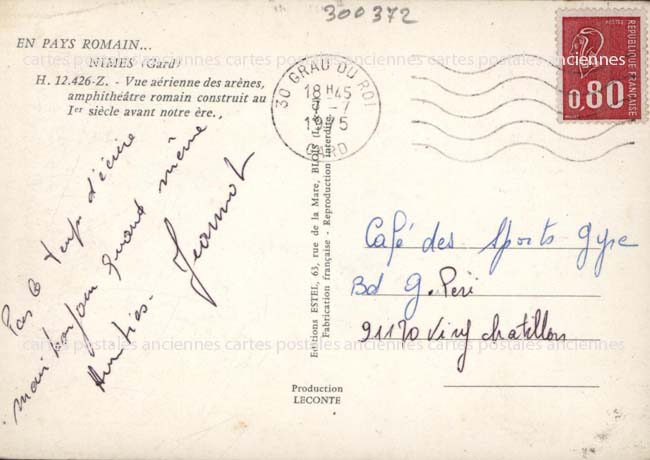 300372
EN PAYS ROMAIN...
NIMES (Gard)
H. 12.426-Z. - Vue aérienne des arènes,
amphithéâtre romain construit au
Ier siècle avant notre ère.
30 GRAU DU ROI
18 H45
7-7
1975
GARD
POSTES
REPUBLIQUE FRANCAISE
0,80
cartes postales anciennes cartes postales anciennes cartes postales anciennes
Pas le temps d'écrire
mais bonjour quand même
Amitiés.
Jeannot
Editions ESTEL, 63, rue de la Mare, BLOIS
Fabrication française - Reproduction Interdite
Café des Sports Gyre
Bd G. Peri
91170 Viry chatillon
Production
LECONTE